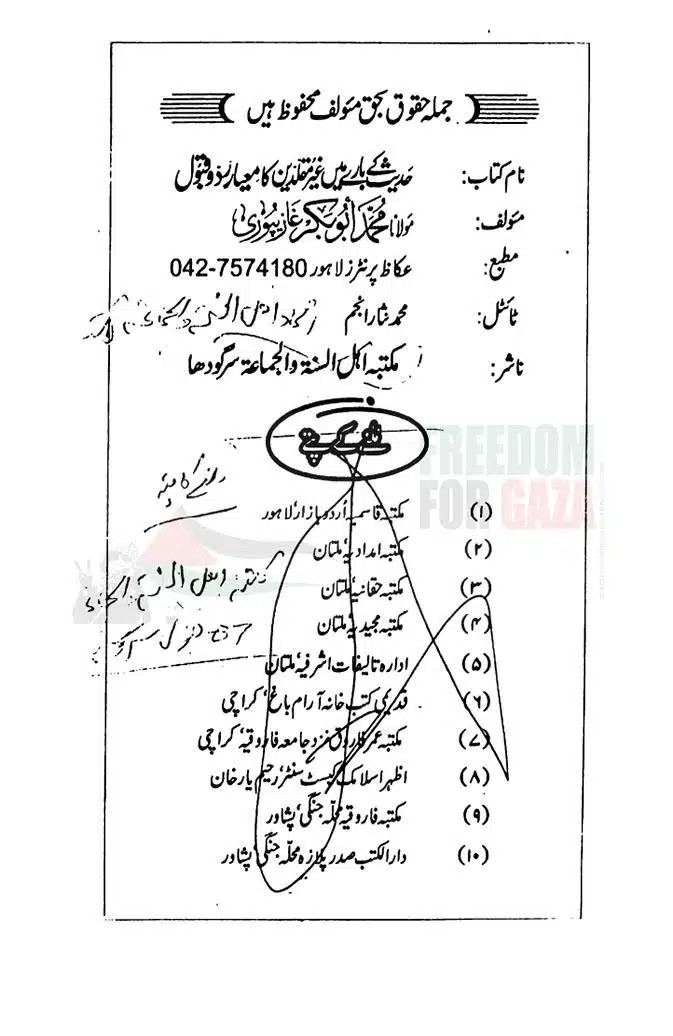 جملہ حقوق بحق مئولف محفوظ ہیں
نام کتاب: حدیث کے بارے میں غیر مقلدین کا معیار رد و قبول
مئولف: مولانا محمد ابوبکر غازیپوری
مطبع: عکاظ پرنٹرز لاہور 042-7574180
ٹائٹل: محمد نثار انجم
ناشر: مکتبہ اہل السنۃ والجماعۃ سرگودھا
ملنے کے پتے
FREEDOM
FOR GAZA
ملنے کا پتہ
(۱) مکتبہ قاسمیہ اُردو بازار لاہور
(۲) مکتبہ امدادیہ ملتان
(۳) مکتبہ حقانیہ ملتان
(۴) مکتبہ مجیدیہ ملتان
(۵) ادارہ تالیفات اشرفیہ ملتان
(۶) قدیمی کتب خانہ آرام باغ، کراچی
(۷) مکتبہ عمر فاروق نزد جامعہ فاروقیہ، کراچی
(۸) اظہر اسلامک کیسٹ سنٹر رحیم یار خان
(۹) مکتبہ فاروقیہ محلّہ جنگی، پشاور
(۱۰) دارالکتب صدر پلازہ محلّہ جنگی، پشاور